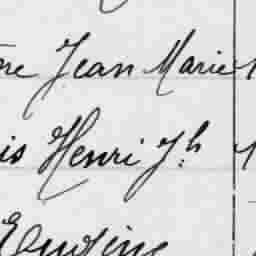 re Jean Marie
is Henri Jh